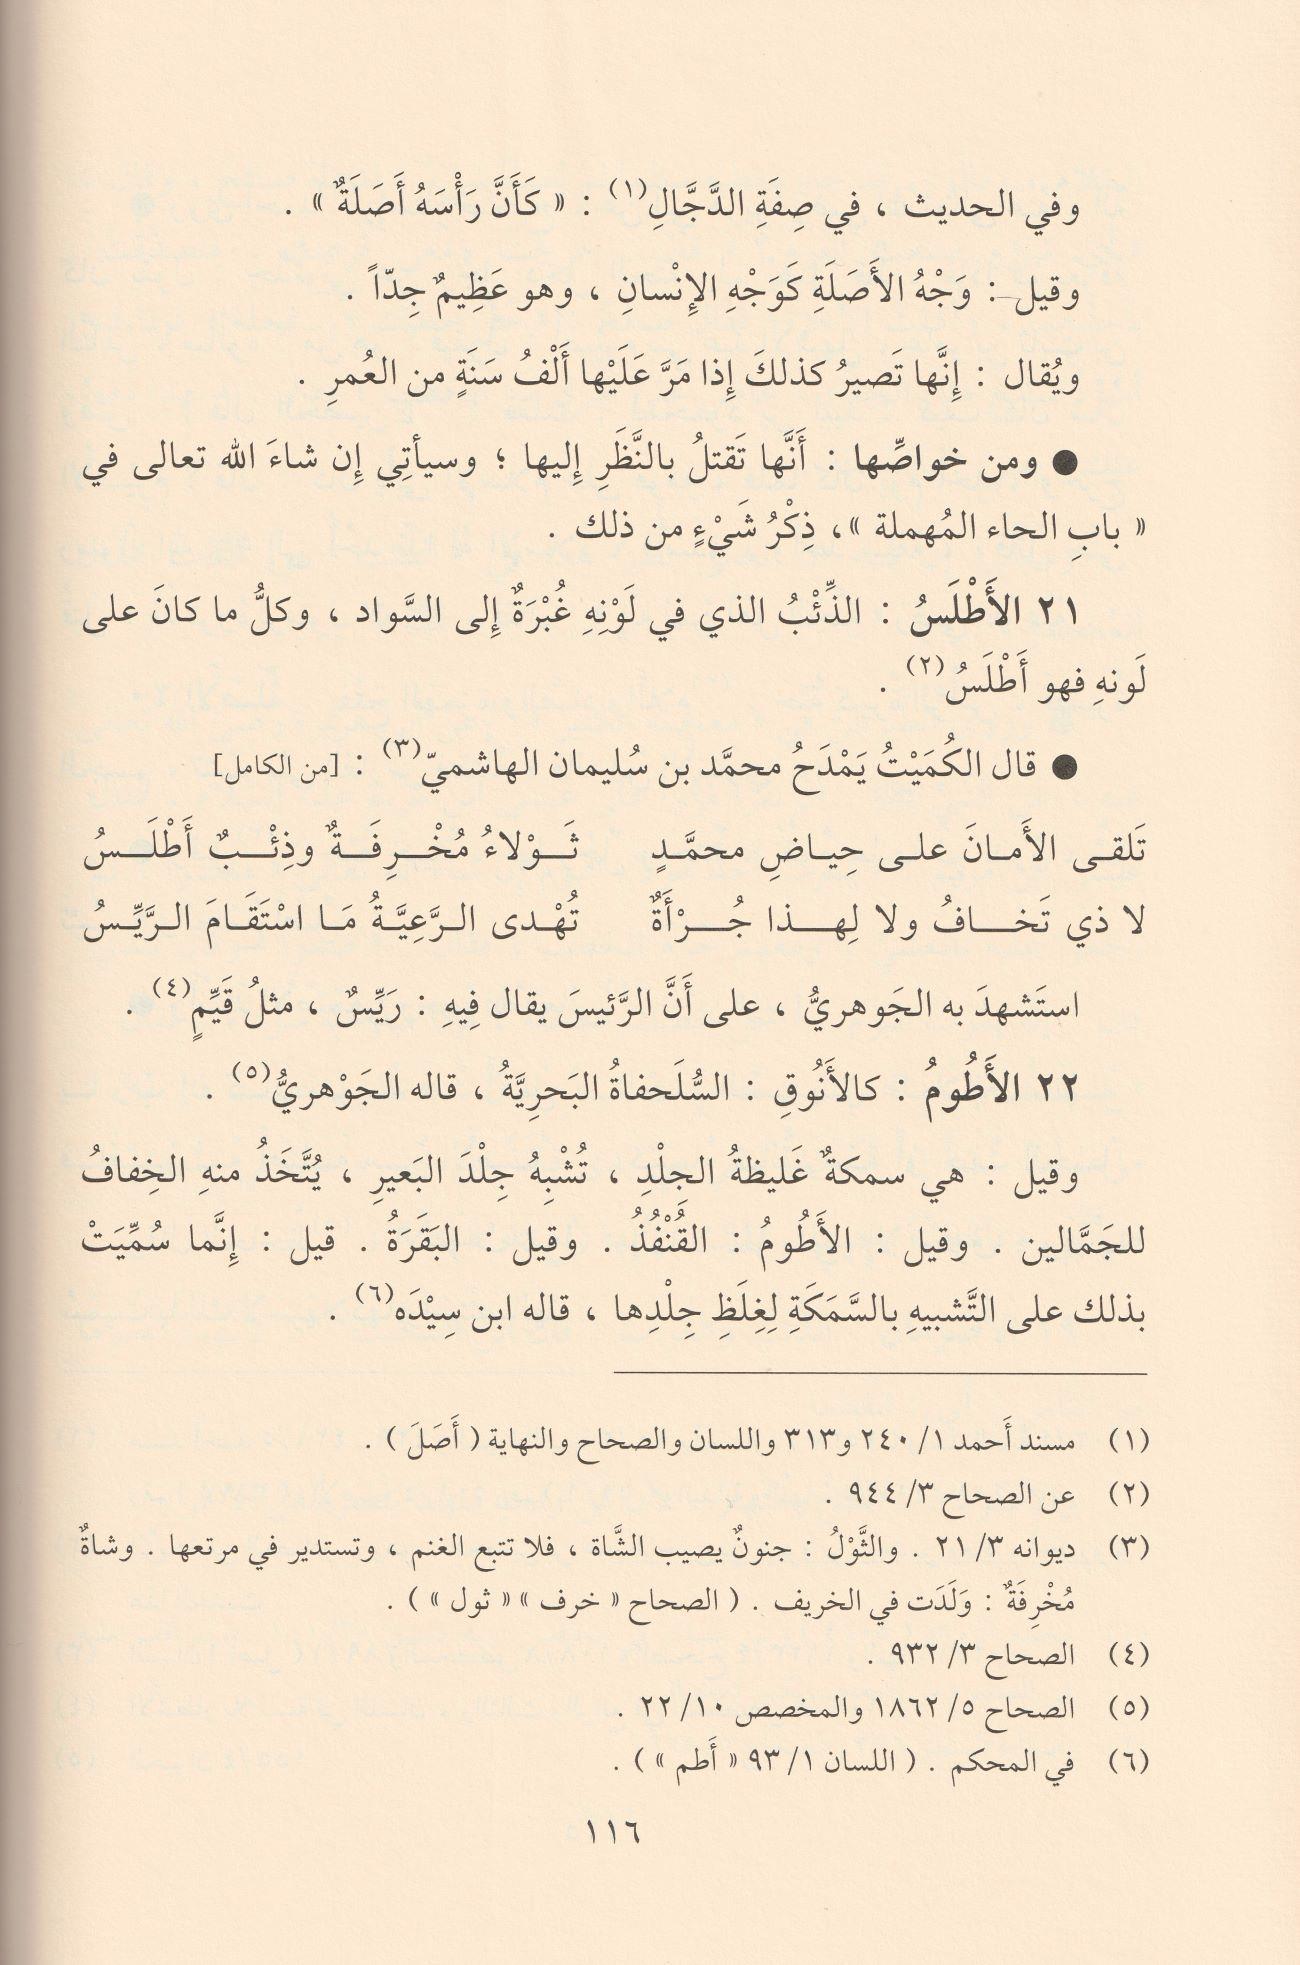 وفي الحديث ، في صِفَةِ الدَّجَّالِ(١) : « كَأَنَّ رَأْسَهُ أَصَلَةٌ » .
وقيل : وَجْهُ الأَصَلَةِ كَوَجْهِ الإِنْسانِ ، وهو عَظِيمٌ جِدّاً .
ويُقال : إِنَّها تَصيرُ كذلكَ إِذا مَرَّ عَلَيْها أَلْفُ سَنَةٍ من العُمرِ .
● ومن خواصِّها : أَنَّها تَقتلُ بالنَّظَرِ إِليها ؛ وسيأتِي إِن شاءَ الله تعالى في
« بابِ الحاء المُهملة »، ذِكْرُ شَيْءٍ من ذلك .
٢١ الأَطْلَسُ : الذِّئْبُ الذي في لَوْنِهِ غُبْرَةٌ إِلى السَّواد ، وكلُّ ما كانَ على
لَونهِ فهو أَطْلَسُ(٢) .
● قال الكُمَيْتُ يَمْدَحُ محمَّد بن سُليمان الهاشميّ(٣) : [من الكامل]
تَلقى الأَمانَ على حِياضِ محمَّدٍ ثَوْلاءُ مُخْرِفَةٌ وذِئْبٌ أَطْلَسُ
لا ذي تَخافُ ولا لِهذا جُرْأَةٌ تُهْدى الرَّعِيَّةُ مَا اسْتَقَامَ الرَّيِّسُ
استَشهدَ به الجَوهريُّ ، على أَنَّ الرَّئيسَ يقال فِيهِ : رَيِّسٌ ، مثلُ قَيِّمٍ(٤) .
٢٢ الأَطُومُ : كالأَنُوقِ : السُّلَحفاةُ البَحرِيَّةُ ، قاله الجَوْهريُّ(٥) .
وقيل : هي سمكةٌ غَليظةُ الجلْدِ ، تُشْبِهُ جِلْدَ البَعيرِ ، يُتَّخَذُ منهِ الخِفافُ
للجَمَّالين . وقيل : الأَطُومُ : القُنْفُذُ . وقيل : البَقَرَةُ . قيل : إِنَّما سُمِّيَتْ
بذلك على التَّشبيهِ بالسَّمَكَةِ لِغِلَظِ جِلْدِها ، قاله ابن سِيْدَه(٦) .
(١) مسند أَحمد ١/ ٢٤٠ و٣١٣ واللسان والصحاح والنهاية ( أَصَلَ ) .
(٢) عن الصحاح ٣/ ٩٤٤ .
(٣) ديوانه ٣/ ٢١ . والثَّوْلُ : جنونٌ يصيب الشَّاة ، فلا تتبع الغنم ، وتستدير في مرتعها . وشاةٌ
مُخْرِفَةٌ : وَلَدَت في الخريف . ( الصحاح « خرف » « ثول » ) .
(٤) الصحاح ٣/ ٩٣٢ .
(٥) الصحاح ٥/ ١٨٦٢ والمخصص ١٠/ ٢٢ .
(٦) في المحكم . ( اللسان ١/ ٩٣ « أَطم » ) .
١١٦